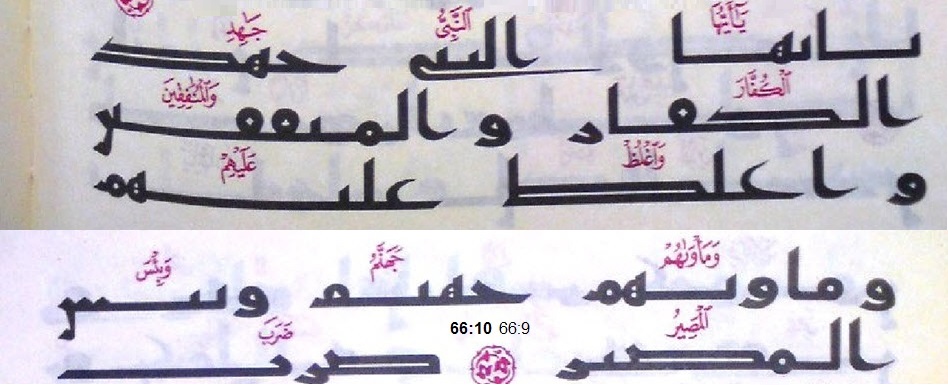 يَٰٓأَيُّهَا ٱلنَّبِىُّ جَٰهِدِ
يايها النبى جهد
ٱلْكُفَّارَ وَٱلْمُنَٰفِقِينَ
الكفار و المنفقين
وَٱغْلُظْ عَلَيْهِمْ
و اغلظ عليهم
وَمَأْوَىٰهُمْ جَهَنَّمُ وَبِئْسَ
و ماويهم جهنم وبيس
ٱلْمَصِيرُ 66:10 66:9 ضَرَبَ
المصير ضرب